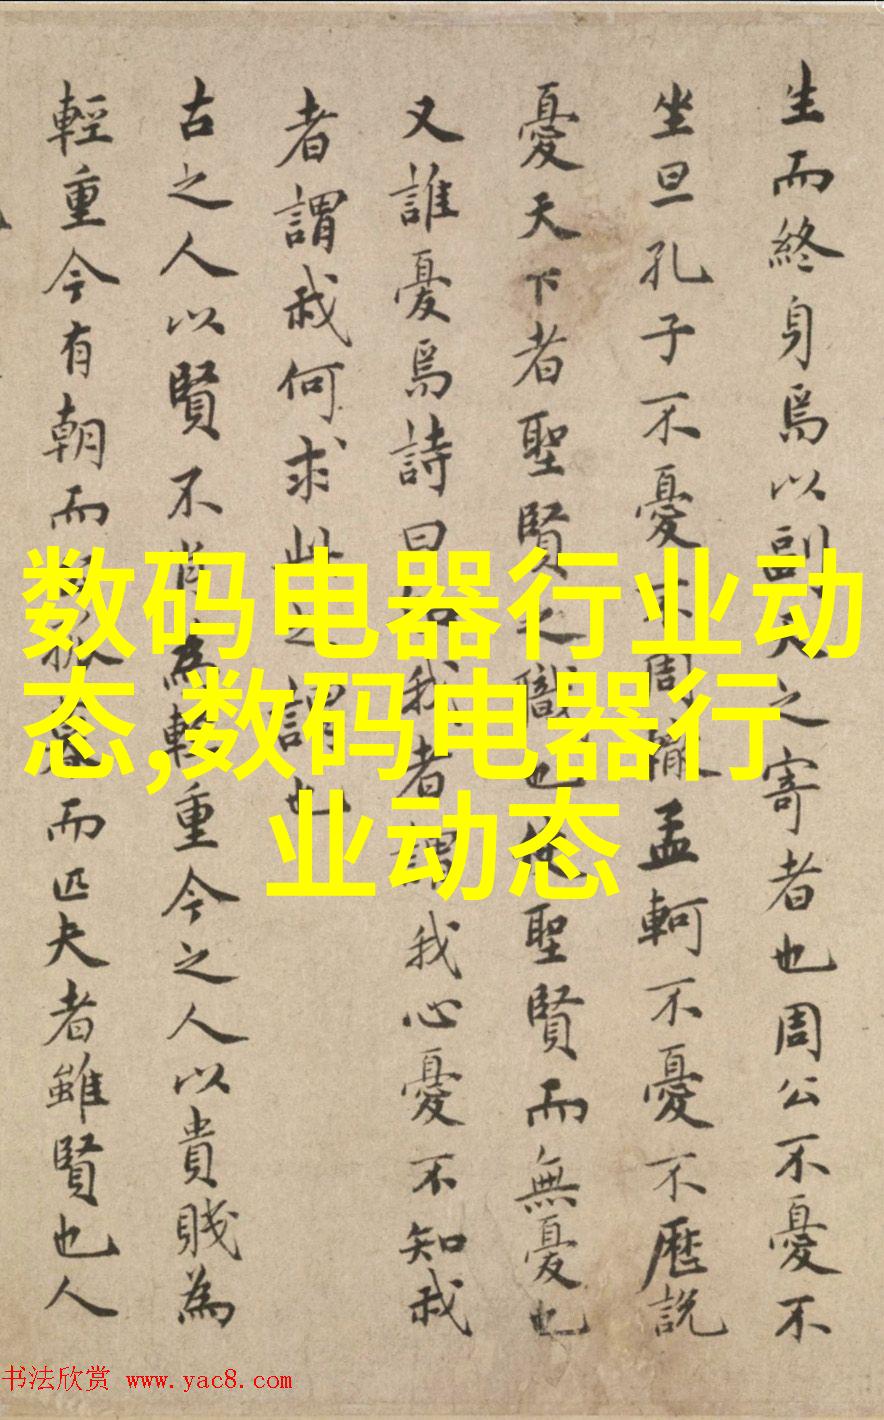 生而終身焉以副天之寄者也周公不憂不
坐旦孔子不憂不周孟軻不憂不歷說
憂天下者聖賢之職也使聖賢而無憂也
又誰憂焉詩曰知我者謂我心憂不知我
者謂我何求此之謂也
古之人以賢不肖為輕重今之人以貴賤為
輕重今有朝而而匹夫者雖賢也人
数码电器行业动
态,数码电器行
业动态
书法欣赏 www.yac8.com